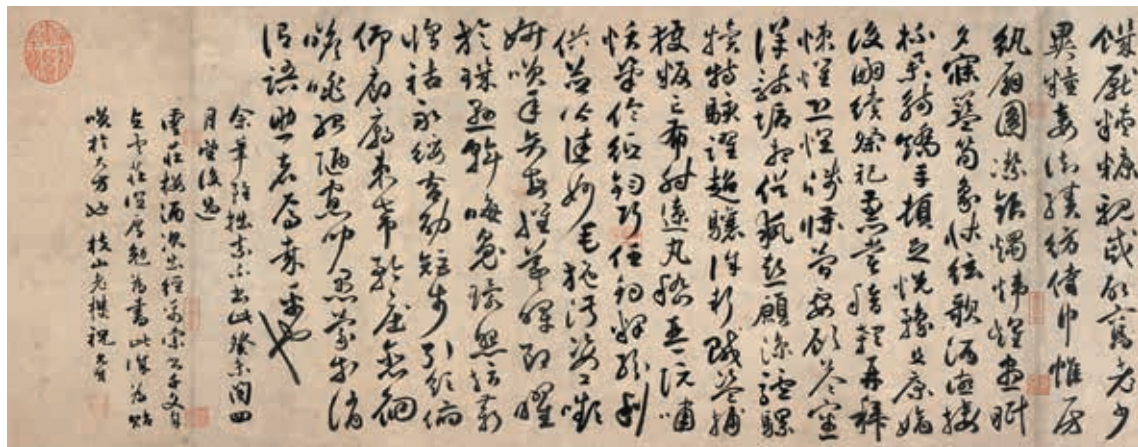 饑厭糟糠親戚故舊老少
異糧妾御績紡侍巾帷房
紈扇圓潔銀燭煒煌晝眠
夕寐藍筍象牀絃歌酒讌接
杯舉觴矯手頓足悅豫且康嫡
後嗣續祭祀烝嘗稽顙再拜
悚懼恐惶牋牒簡要顧答審
詳骸垢想浴執熱願涼驢騾
犢特駭躍超驤誅斬賊盜捕
獲叛亡布射遼丸嵇琴阮嘯
恬筆倫紙鈞巧任釣釋紛利
俗並皆佳妙毛施淑姿工嚬
妍笑年矢每催羲暉朗曜
旋璣懸斡晦魄環照指薪
修祜永綏吉劭矩步引領俯
仰廊廟束帶矜莊徘徊
瞻眺孤陋寡聞愚蒙等誚
謂語助者焉哉乎也
余筆雖拙出此癸未閏四
月望後過
雲莊樓酒次出千文
莊勉為書此深為貽
笑於大方也 枝山老樵祝允明